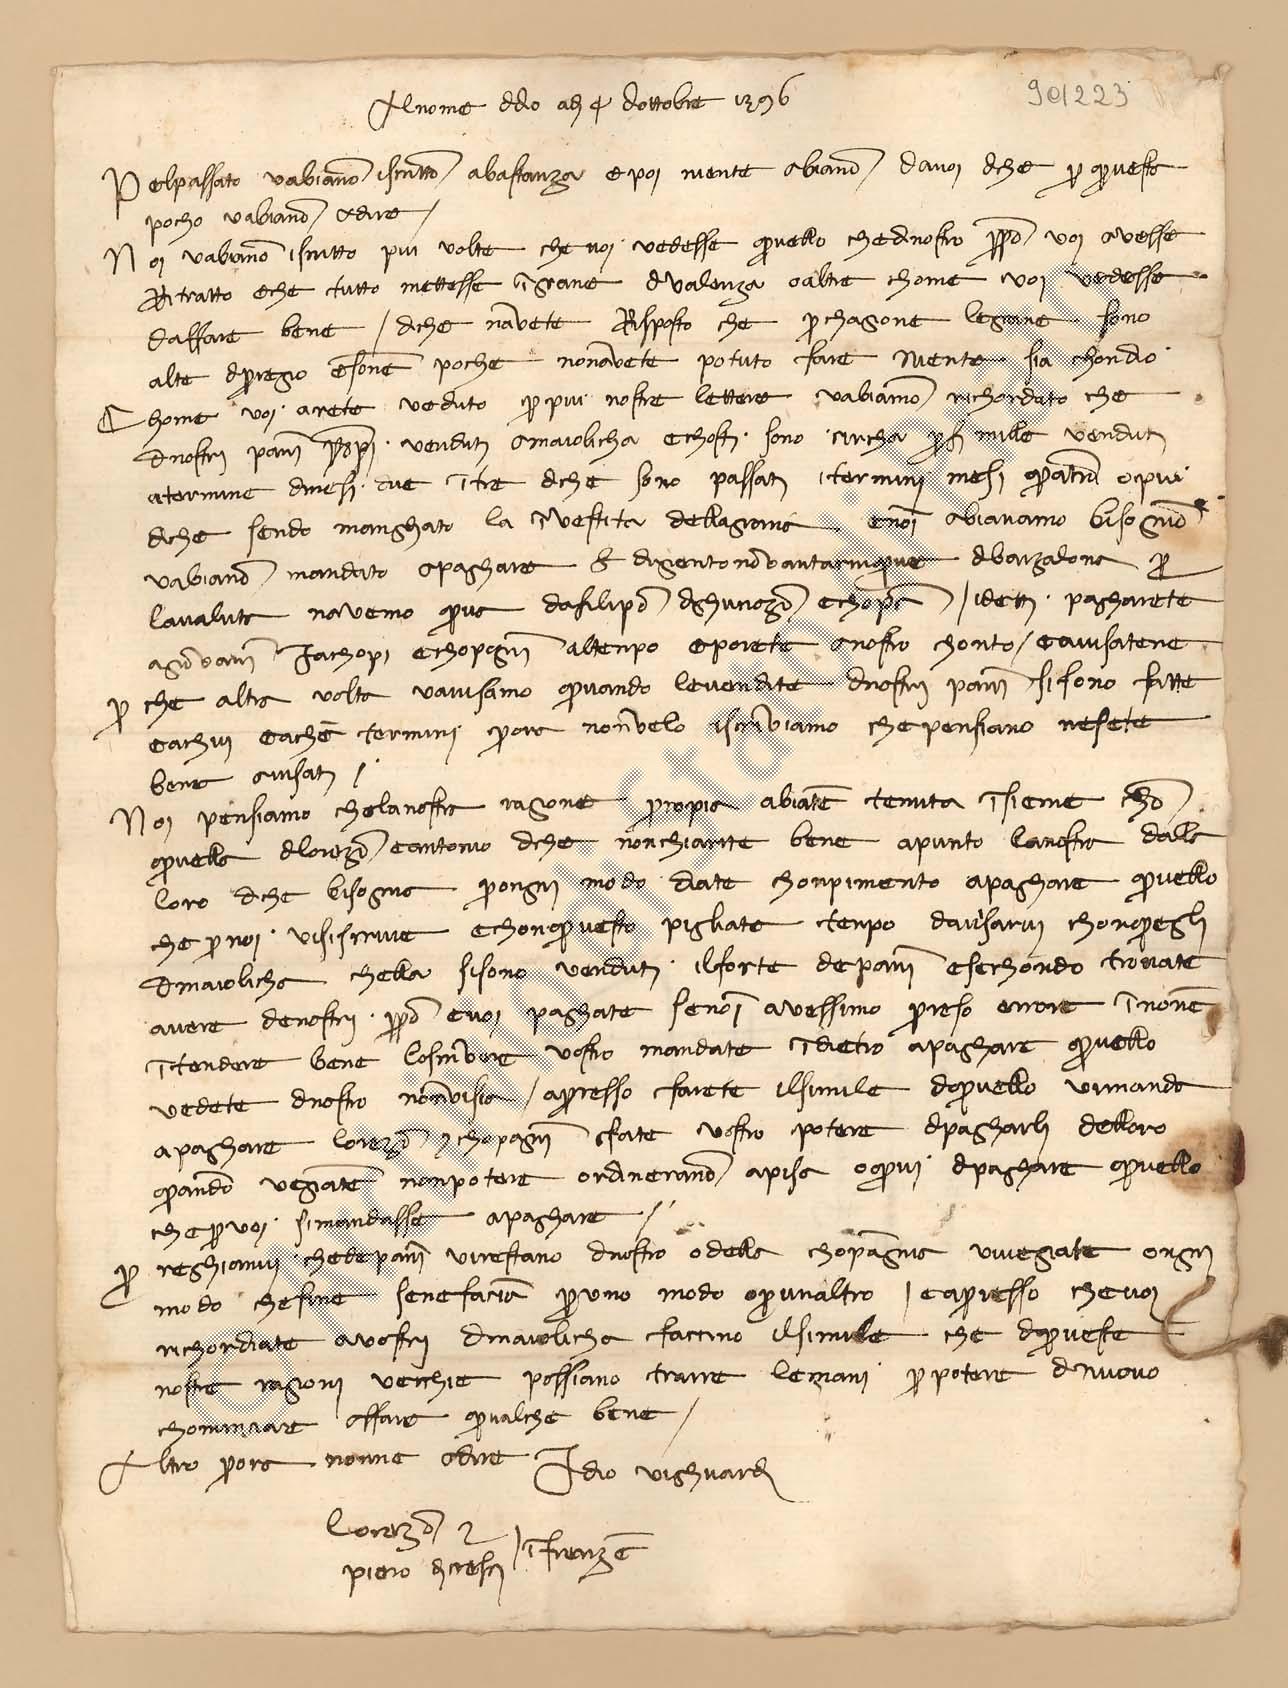 Al nome ddio adj 4 dottobre 1396
901223
Pelpassato vabiano iscritto abastanza e poi niente abiano davoi dche p questa
pocho vabiano adire /
Noi vabiamo iscritto piu volte che voi vedesse quello che dnostro ppo voi avesse
Ritratto e che tutto mettesse i grane dvalenza o altre chome voi vedesse
daffare bene / dche navete Risposto che p chagone legrane sono
alte dpregio e sone poche nonavete potuto fare niente sia chondio
Chome voi arete veduto p piu nostre lettere vabiamo richordato che
dnostri panj venduti a maiolicha e chosti sono circha mille venduti
a termine dmesi due i tre dche sono passati i termini mesi quatro o piu
dche sendo manghato la investita dellagrana e noi abiavamo bisogno
vabiano mandato apaghare dugentonovantacinque dbarzalona p
lavaluta navemo qua dafilipo e chopa / idetti pagharete
a govani Iachopi e chopagni altenpo e ponete a nostro chonto / e avisatene
p che altra volta vavisamo quando levendite dnostri panj si sono fatte
e achui e ache termini p ora nonvelo iscriviamo che pensiano nesete
bene avisati /
Noi pensiamo chelanostra ragone propia abiate tenuta insieme cho
quella dlorenzo e antonio dche nonchiarite bene apunto lanostra dala
loro dche bisogna p ongni modo diate chonpimento apaghare quello
che p noi visiscrive e chonquesto pigliate tenpo davisarvi chonquegli
dmaiolicha chella si sono venduti ilforte depanj e sechondo trovate
avere denostri ppo e voi paghate se noi avessimo preso errore i none
intendere bene loscrivere vostro mandate indietro apaghare quello
vedete dnostro nonvisia / apresso farete ilsimile dquello vimanda
apaghare lorenzo e chopagni e fate vostro potere dpagharli delloro
quando vegiate nonpotere ordineranno apisa o qui dpaghare quello
che p voi simandasse apaghare /
Preghianvi chede panj virestano dnostro o della chopagnia vivegiate ongni
modo che fine sene facia p uno modo o p unaltro / e apresso che voi
richordiate avostri dmaiolicha faccino ilsimile che dqueste
nostre ragioni vecchie possiano trarre lemani p potere dnuovo
chominciare affare qualche bene /
Altro p ora nonne adire Idio vighuardi
Lorenzo e
piero dcresci / i firenze